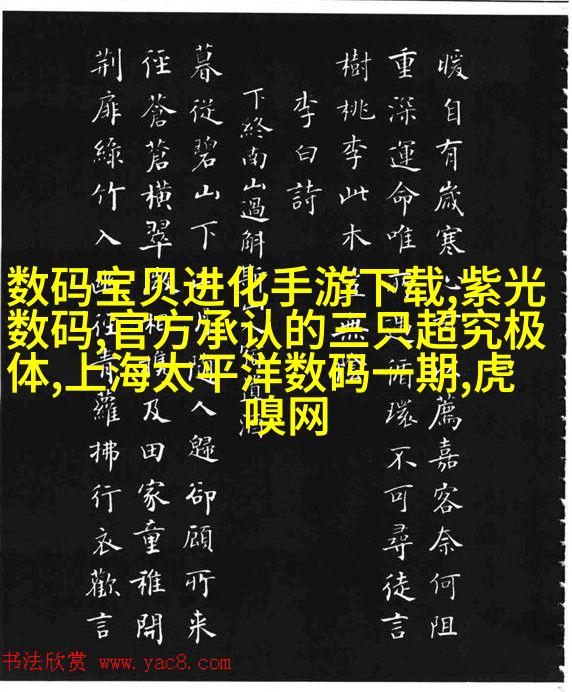 暖自有歲寒心薦嘉客奈何阻
重深運命唯循環不可尋徒言
樹桃李此木
李白詩
下終南山過斛
暮從碧山下人歸卻顧所来
徑蒼蒼橫翠相及田家童稚開
荊扉綠竹入青蘿拂行衣歡言
数码宝贝进化手游下载,紫光
数码,官方承认的三只超究极
体,上海太平洋数码一期,虎
嗅网
书法欣赏 www.yac8.com